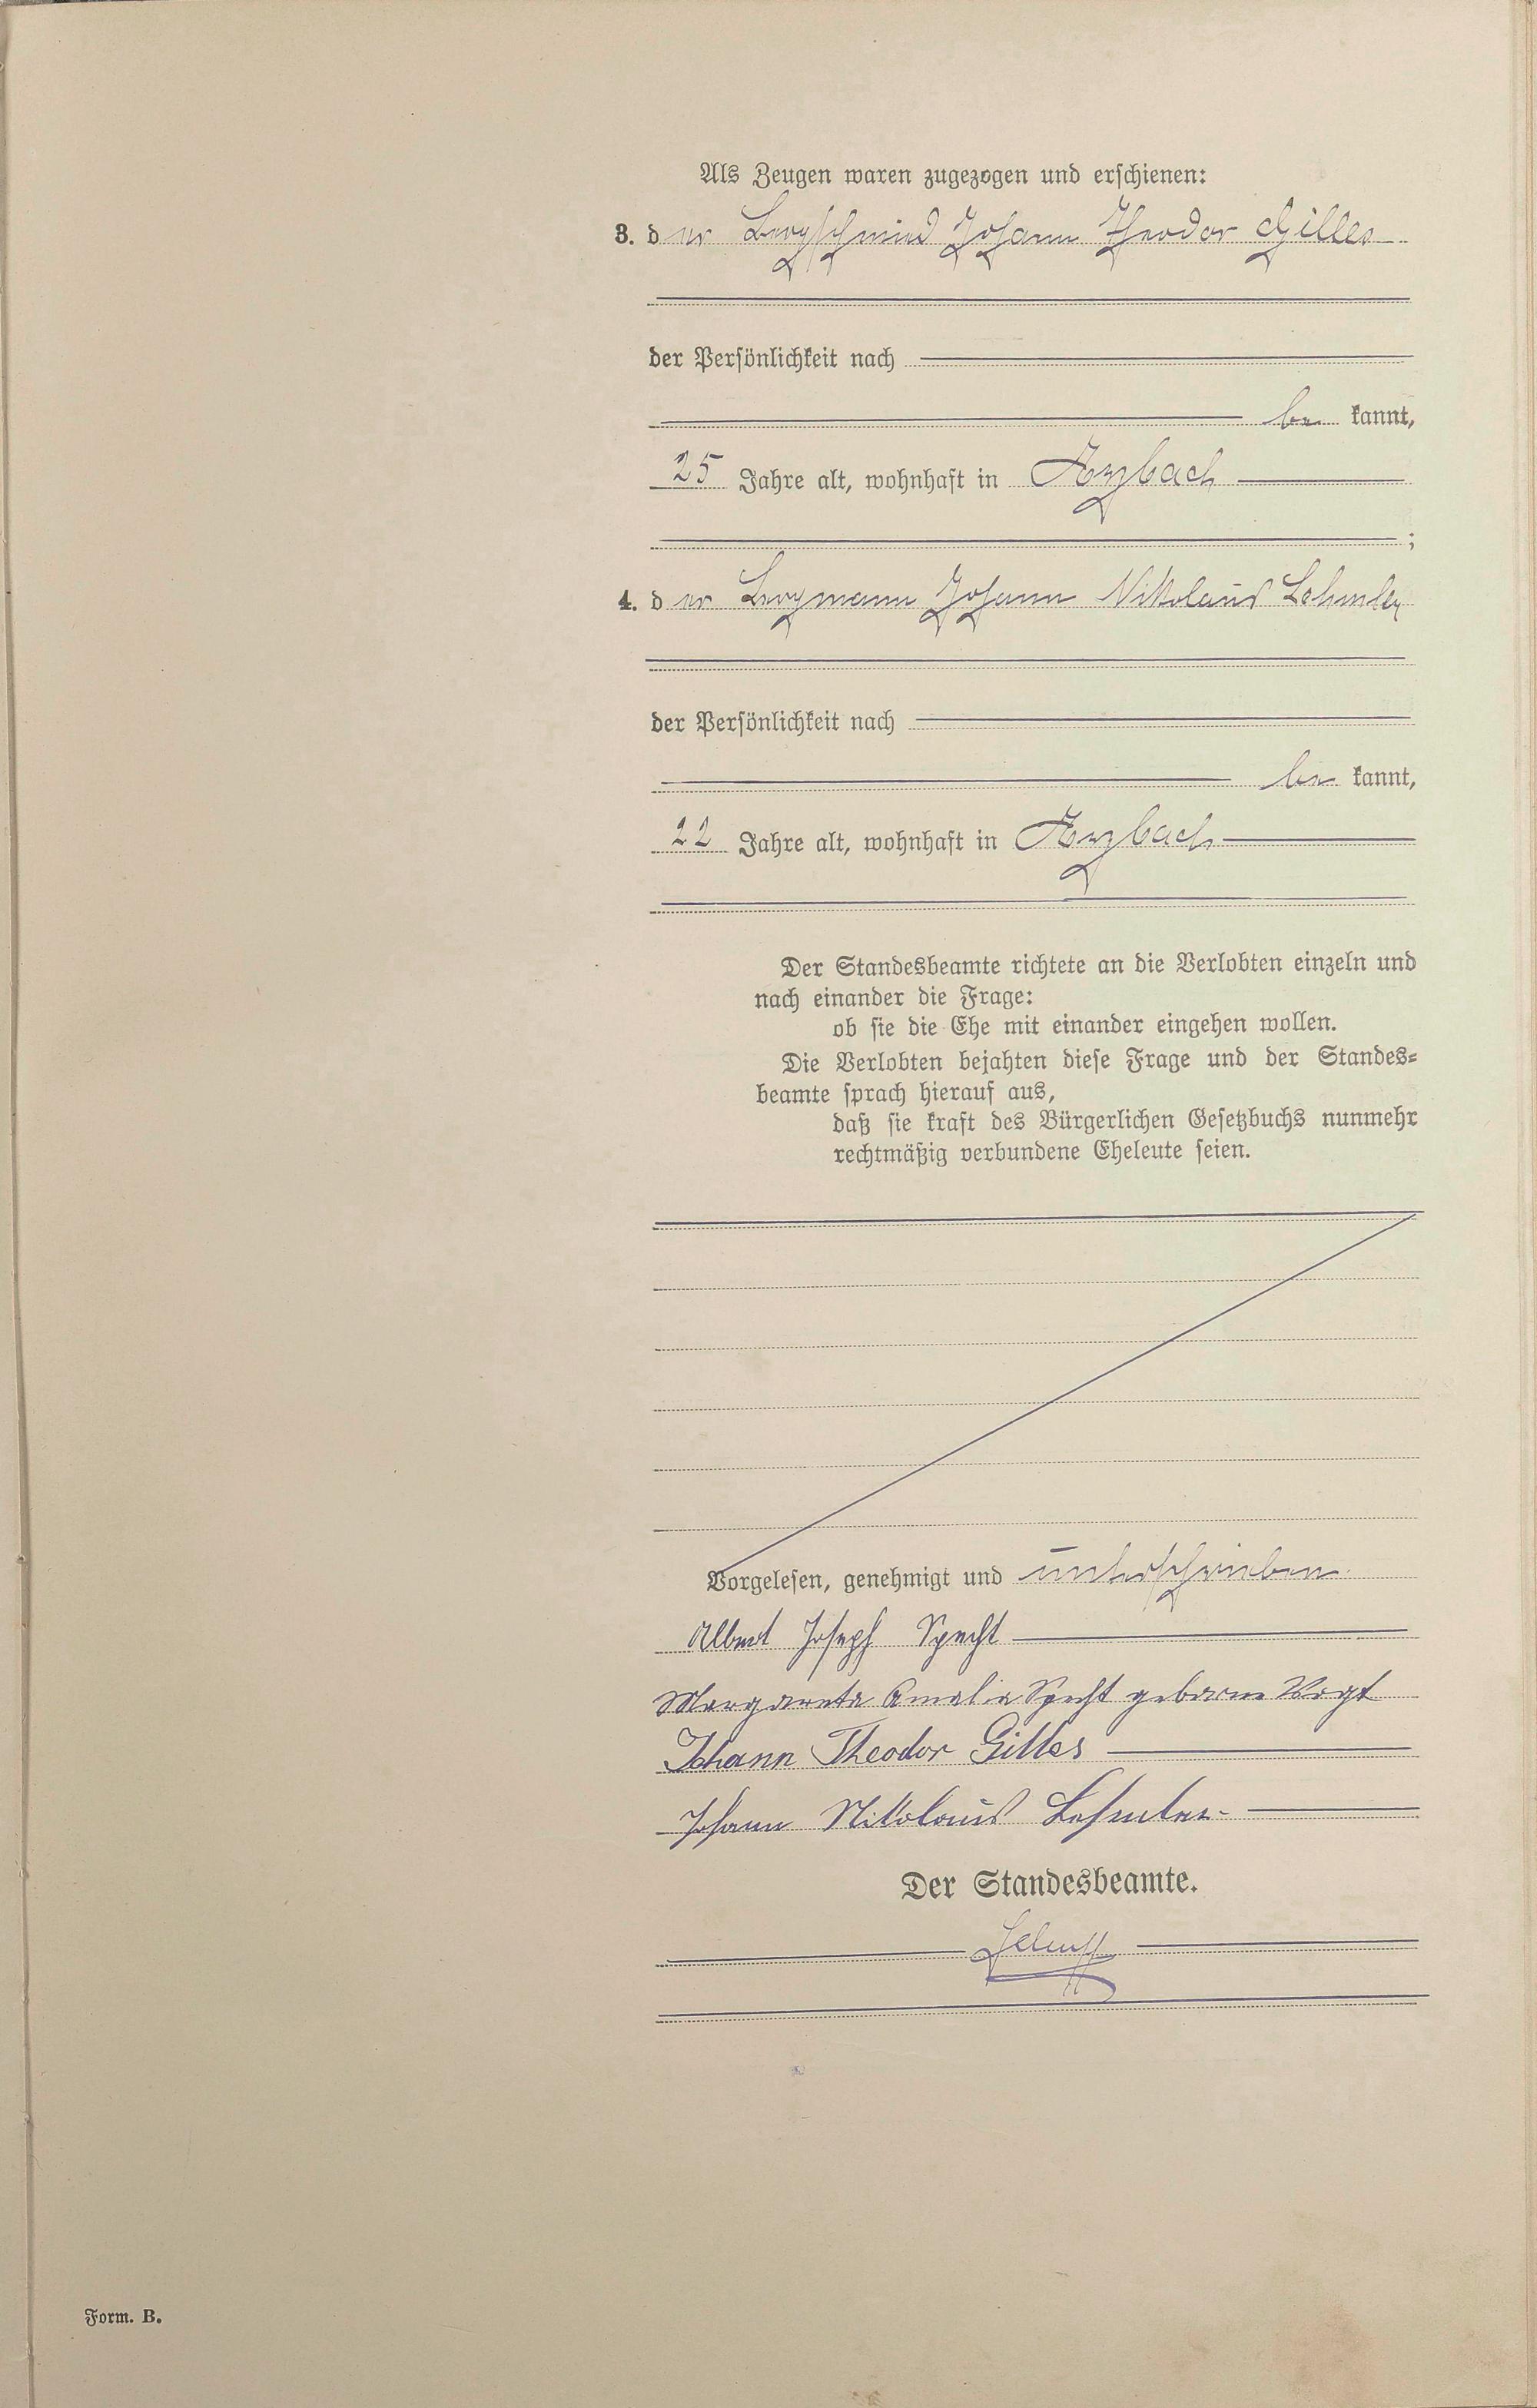 Als Zeugen waren zugezogen und erschienen:
3. der Bergschmied Johann Theodor Gilles
der Persönlichkeit nach
be kannt,
25 Jahre alt, wohnhaft in Arzbach
;
4. der Bergmann Johann Nikolaus Lehmler
der Persönlichkeit nach
be kannt,
22 Jahre alt, wohnhaft in Arzbach
Der Standesbeamte richtete an die Verlobten einzeln und
nach einander die Frage:
ob sie die Ehe mit einander eingehen wollen.
Die Verlobten bejahten diese Frage und der Standes-
beamte sprach hierauf aus,
daß sie kraft des Bürgerlichen Gesetzbuchs nunmehr
rechtmäßig verbundene Eheleute seien.
Vorgelesen, genehmigt und unterschrieben.
Albert Joseph Specht
Margareta Amalia Specht geborne Vogt
Johann Theodor Gilles
Johann Nikolaus Lehmler
Der Standesbeamte.
Form. B.